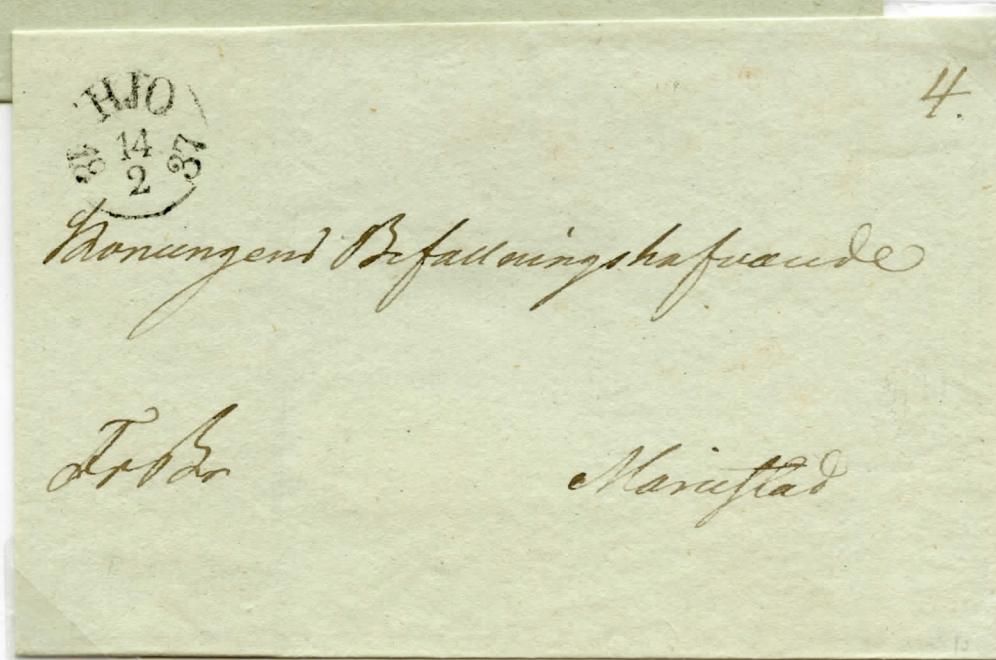 HJO
4.
14
18 37
2
Konungens Befallningshafvande
Fr Br
Mariestad